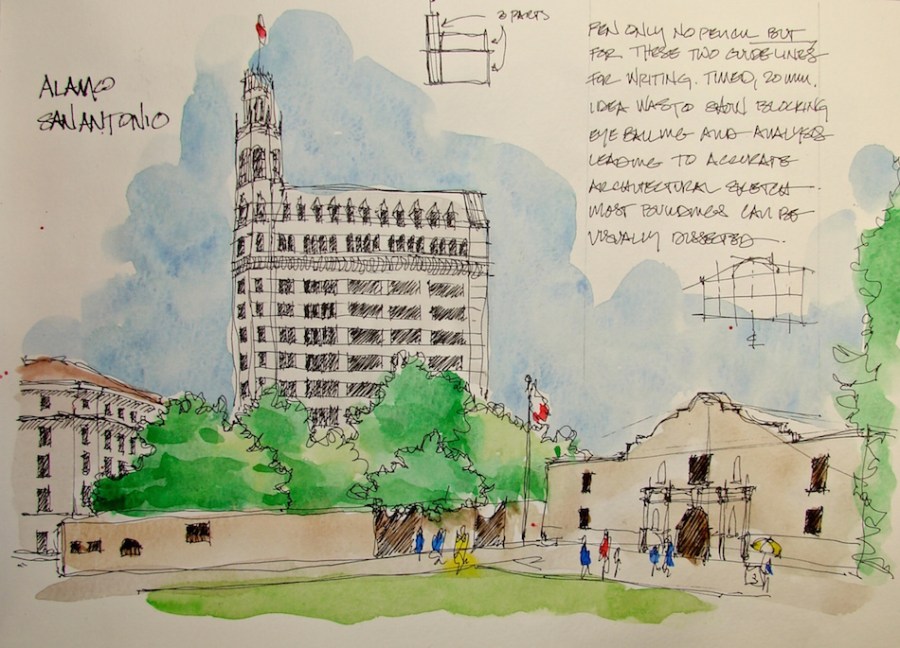 ALAMO
SAN ANTONIO
3 PARTS
PEN ONLY NO PENCIL BUT
FOR THESE TWO GUIDELINES
FOR WRITING. TIMED, 20 MIN.
IDEA WAS TO SHOW BLOCKING
EYE BALLING AND ANALYSIS
LEADING TO ACCURATE
ARCHITECTURAL SKETCH.
MOST BUILDINGS CAN BE
VISUALLY DISSECTED.